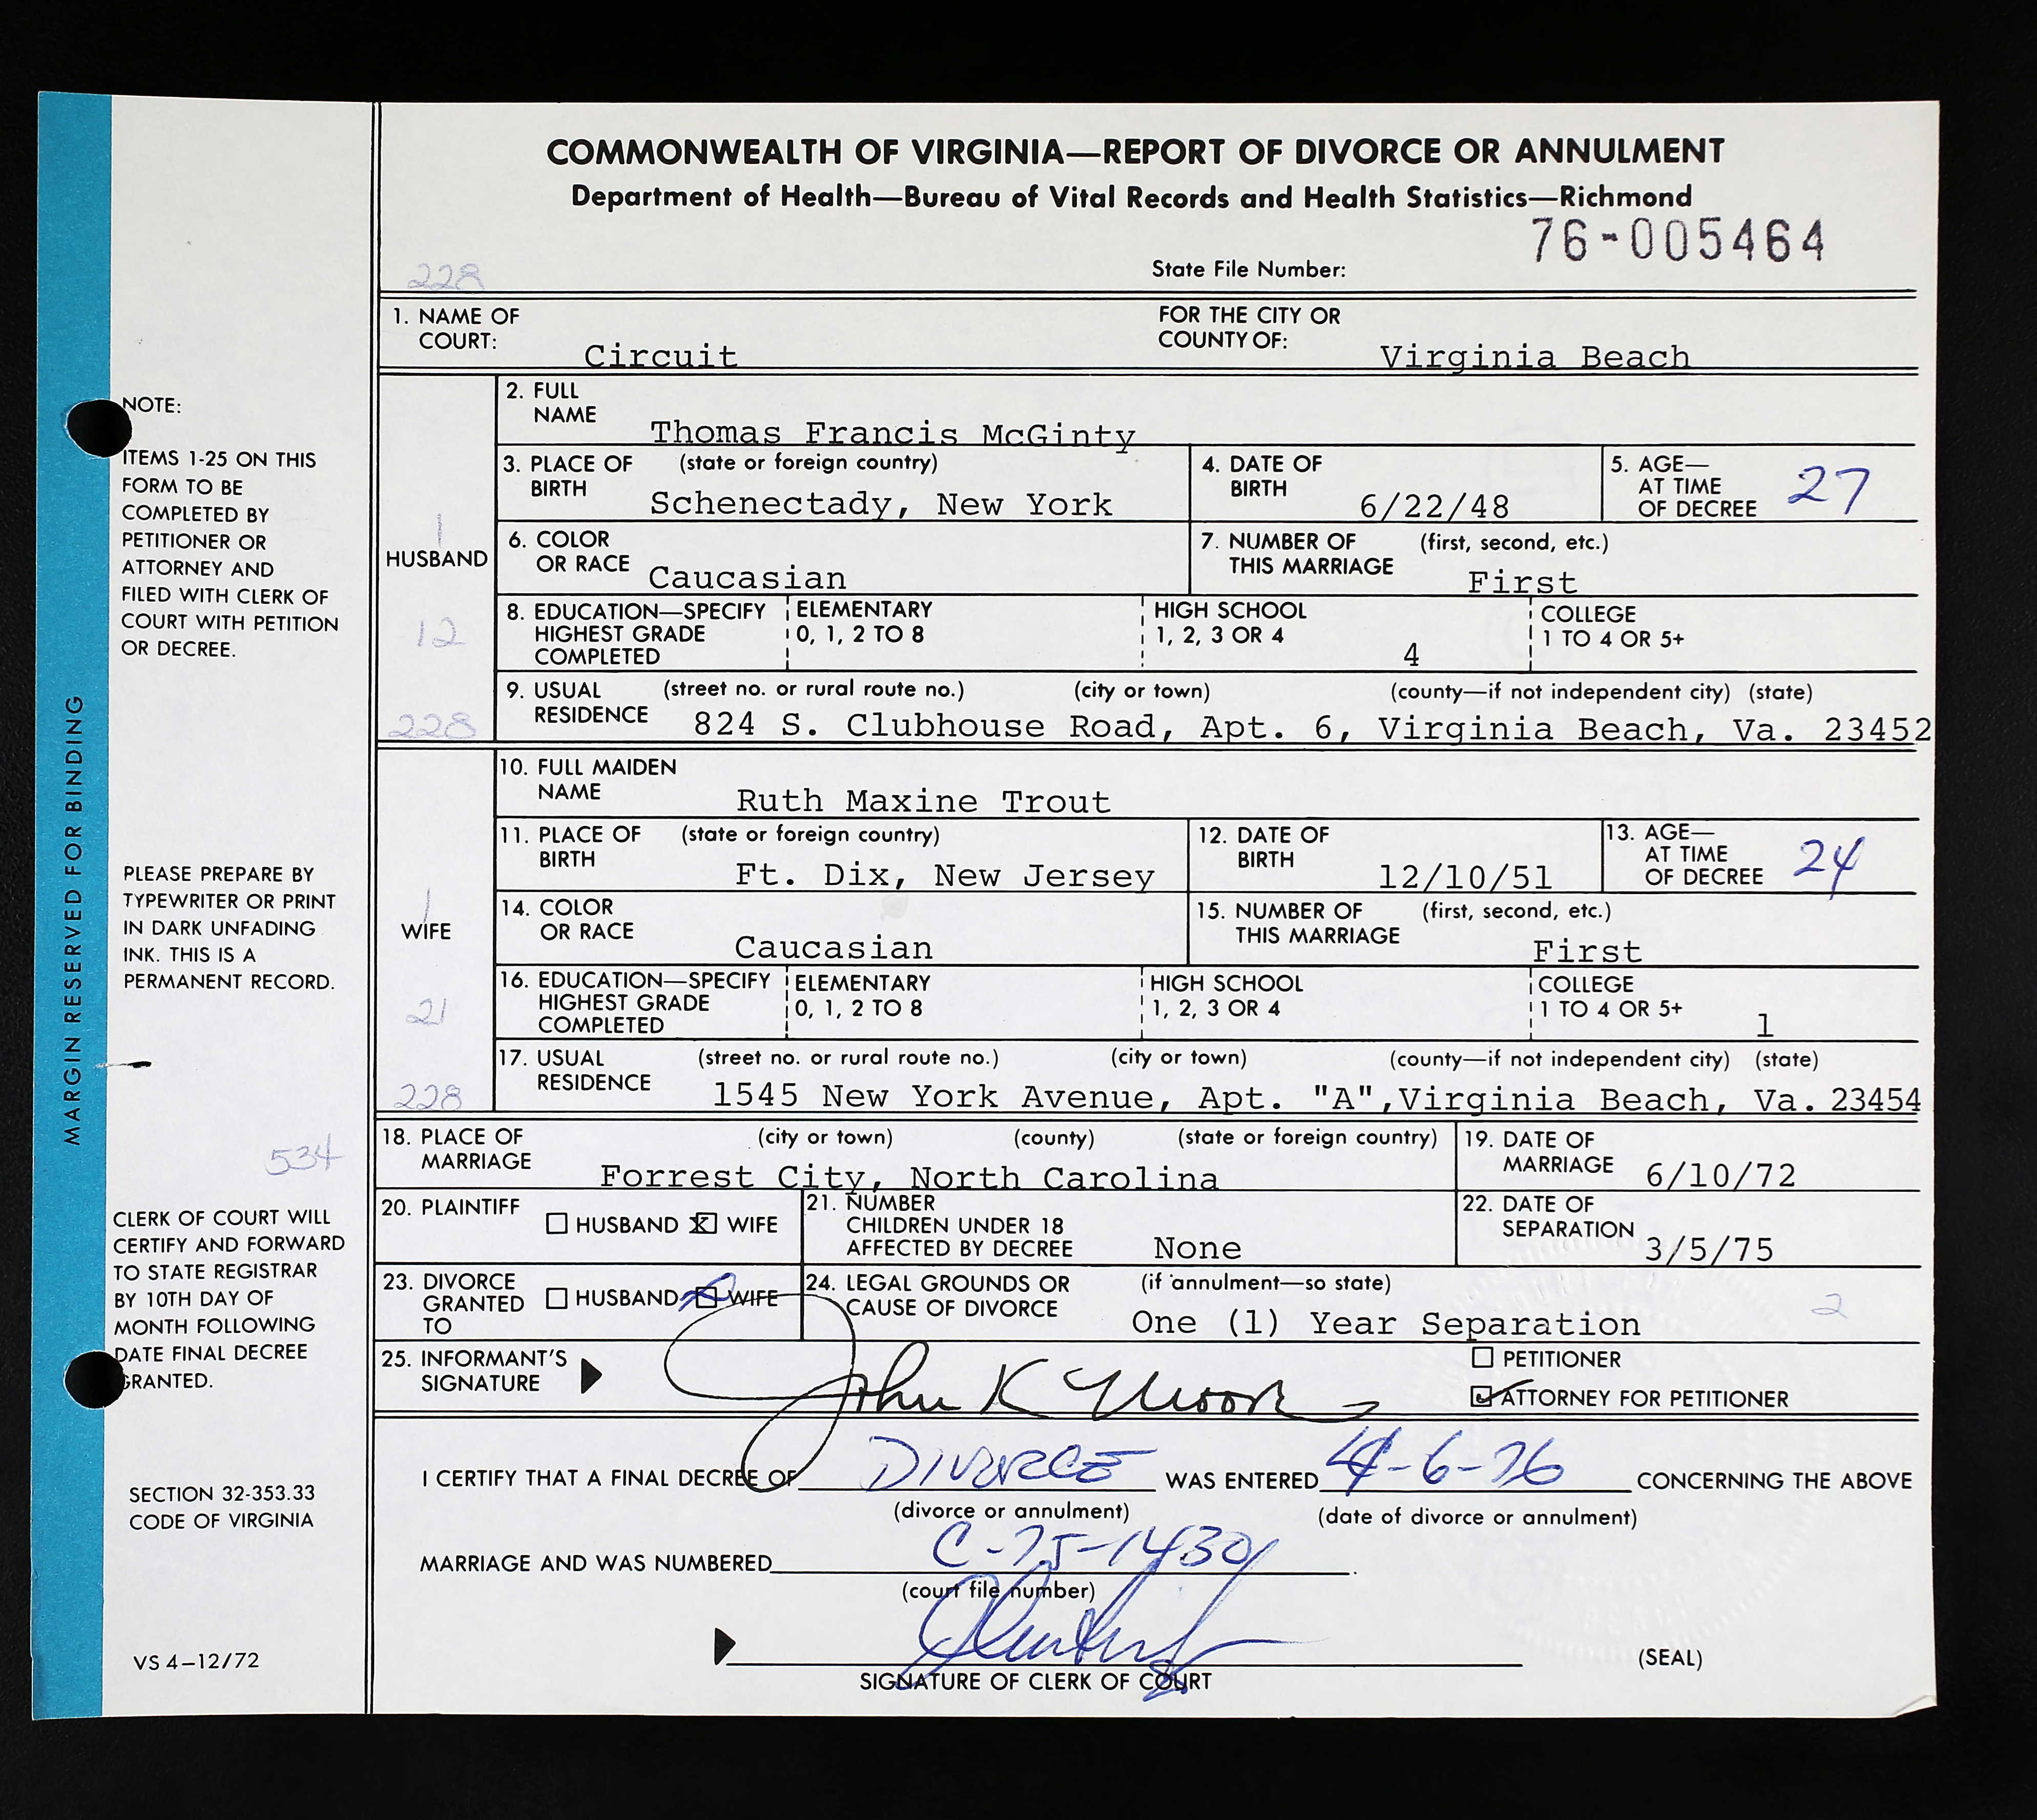 COMMONWEALTH OF VIRGINIA—REPORT OF DIVORCE OR ANNULMENT
Department of Health—Bureau of Vital Records and Health Statistics—Richmond
76-005464
State File Number:
228
1. NAME OF COURT: Circuit FOR THE CITY OR COUNTY OF: Virginia Beach
HUSBAND
1
12
228
2. FULL NAME Thomas Francis McGinty
3. PLACE OF BIRTH (state or foreign country) Schenectady, New York
4. DATE OF BIRTH 6/22/48
5. AGE—AT TIME OF DECREE 27
6. COLOR OR RACE Caucasian
7. NUMBER OF THIS MARRIAGE (first, second, etc.) First
8. EDUCATION—SPECIFY HIGHEST GRADE COMPLETED ELEMENTARY 0, 1, 2 TO 8 HIGH SCHOOL 1, 2, 3 OR 4 4 COLLEGE 1 TO 4 OR 5+
9. USUAL RESIDENCE (street no. or rural route no.) (city or town) (county—if not independent city) (state)
824 S. Clubhouse Road, Apt. 6, Virginia Beach, Va. 23452
WIFE
1
21
228
10. FULL MAIDEN NAME Ruth Maxine Trout
11. PLACE OF BIRTH (state or foreign country) Ft. Dix, New Jersey
12. DATE OF BIRTH 12/10/51
13. AGE—AT TIME OF DECREE 24
14. COLOR OR RACE Caucasian
15. NUMBER OF THIS MARRIAGE (first, second, etc.) First
16. EDUCATION—SPECIFY HIGHEST GRADE COMPLETED ELEMENTARY 0, 1, 2 TO 8 HIGH SCHOOL 1, 2, 3 OR 4 COLLEGE 1 TO 4 OR 5+ 1
17. USUAL RESIDENCE (street no. or rural route no.) (city or town) (county—if not independent city) (state)
1545 New York Avenue, Apt. "A",Virginia Beach, Va. 23454
18. PLACE OF MARRIAGE (city or town) (county) (state or foreign country) Forrest City, North Carolina
19. DATE OF MARRIAGE 6/10/72
20. PLAINTIFF ☐ HUSBAND ☒ WIFE
21. NUMBER CHILDREN UNDER 18 AFFECTED BY DECREE None
22. DATE OF SEPARATION 3/5/75
23. DIVORCE GRANTED TO ☐ HUSBAND ☒ WIFE
24. LEGAL GROUNDS OR CAUSE OF DIVORCE (if annulment—so state) One (1) Year Separation
2
25. INFORMANT'S SIGNATURE John K Moore
☐ PETITIONER
☑ ATTORNEY FOR PETITIONER
I CERTIFY THAT A FINAL DECREE OF DIVORCE WAS ENTERED 4-6-76 CONCERNING THE ABOVE
(divorce or annulment) (date of divorce or annulment)
MARRIAGE AND WAS NUMBERED C-75-1430
(court file number)
SIGNATURE OF CLERK OF COURT
(SEAL)
MARGIN RESERVED FOR BINDING
NOTE:
ITEMS 1-25 ON THIS
FORM TO BE
COMPLETED BY
PETITIONER OR
ATTORNEY AND
FILED WITH CLERK OF
COURT WITH PETITION
OR DECREE.
PLEASE PREPARE BY
TYPEWRITER OR PRINT
IN DARK UNFADING
INK. THIS IS A
PERMANENT RECORD.
534
CLERK OF COURT WILL
CERTIFY AND FORWARD
TO STATE REGISTRAR
BY 10TH DAY OF
MONTH FOLLOWING
DATE FINAL DECREE
GRANTED.
SECTION 32-353.33
CODE OF VIRGINIA
VS 4—12/72